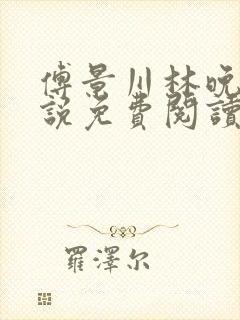 傅景川林晚
說免費閱讀
羅澤尔